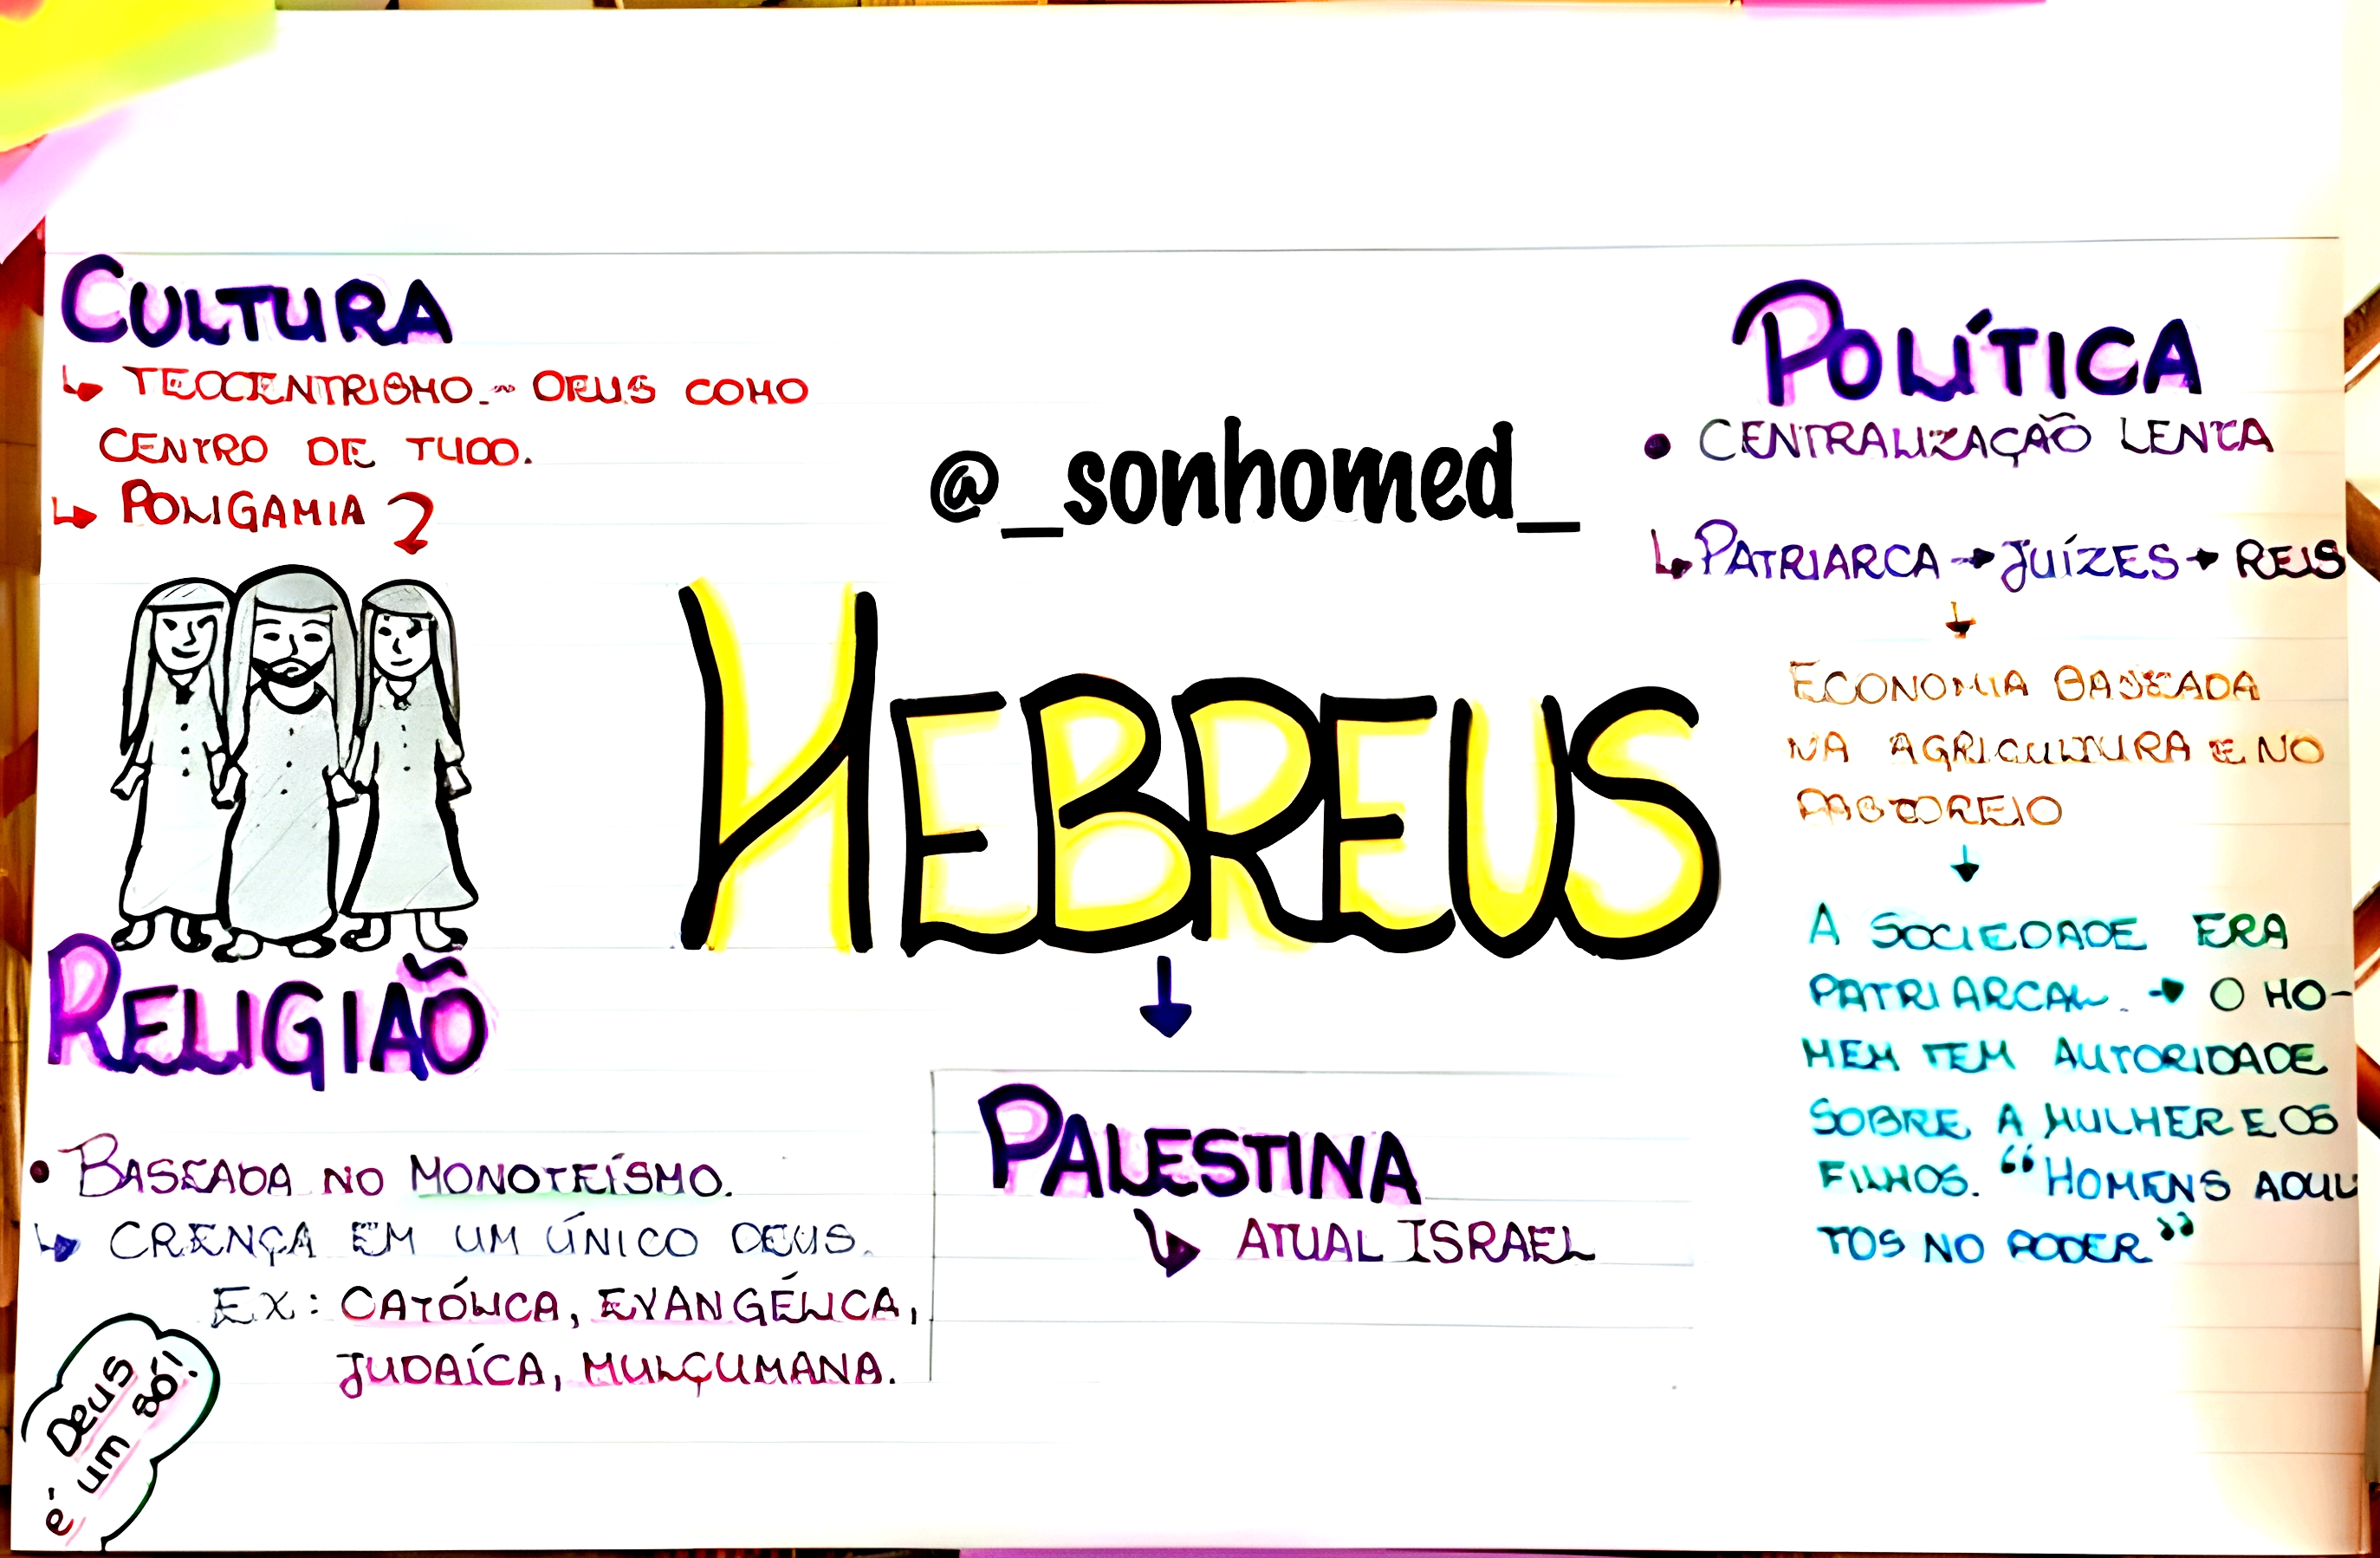 CULTURA
↳ TEOCENTRISMO ~ DEUS COMO
CENTRO DE TUDO.
↳ POLIGAMIA
RELIGIÃO
• BASEADA NO MONOTEÍSMO.
↳ CRENÇA EM UM ÚNICO DEUS.
EX: CATÓLICA, EVANGÉLICA,
JUDAÍCA, MULÇUMANA.
Deus
é um só!
@_sonhomed_
HEBREUS
PALESTINA
↳ ATUAL ISRAEL
POLÍTICA
• CENTRALIZAÇÃO LENTA
↳ PATRIARCA → JUÍZES → REIS
ECONOMIA BASEADA
NA AGRICULTURA E NO
PASTOREIO
A SOCIEDADE ERA
PATRIARCAL. → O HO-
MEM TEM AUTORIDADE
SOBRE A MULHER E OS
FILHOS. “HOMENS ADUL
TOS NO PODER”